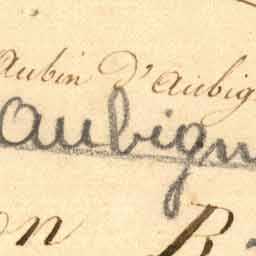 Aubin D'Aubig
Aubign
n B